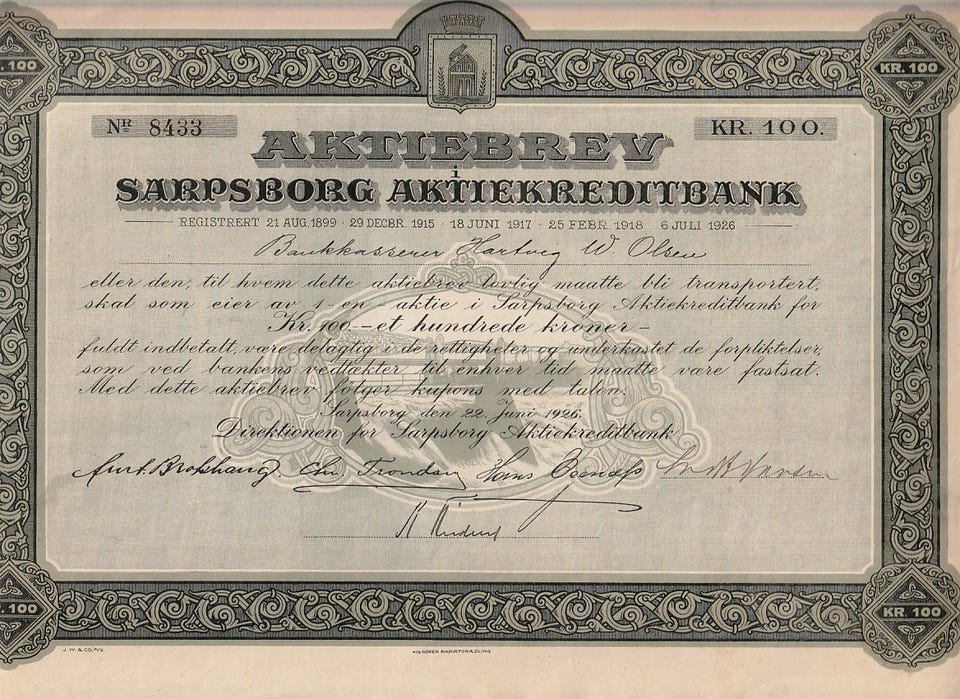 KR. 100
Nr 8433
KR. 100.
AKTIEBREV
i
SARPSBORG AKTIEKREDITBANK
REGISTRERT 21 AUG. 1899 · 29 DECBR. 1915 · 18 JUNI 1917 · 25 FEBR. 1918 6 JULI 1926
Bankkasserer Hartvig W. Olsen
eller den, til hvem dette aktiebrev lovlig maatte bli transportert,
skal som eier av 1 - en aktie i Sarpsborg Aktiekreditbank for
Kr. 100 - et hundrede kroner -
fuldt indbetalt, være delagtig i de rettigheter og underkastet de forpliktelser,
som ved bankens vedtækter til enhver tid maatte være fastsat.
Med dette aktiebrev følger kupons med talon.
Sarpsborg den 22. Juni 1926.
Direktionen for Sarpsborg Aktiekreditbank
Chr Trondsen Hans
.100
KR. 100
J. W. & CO. A/S